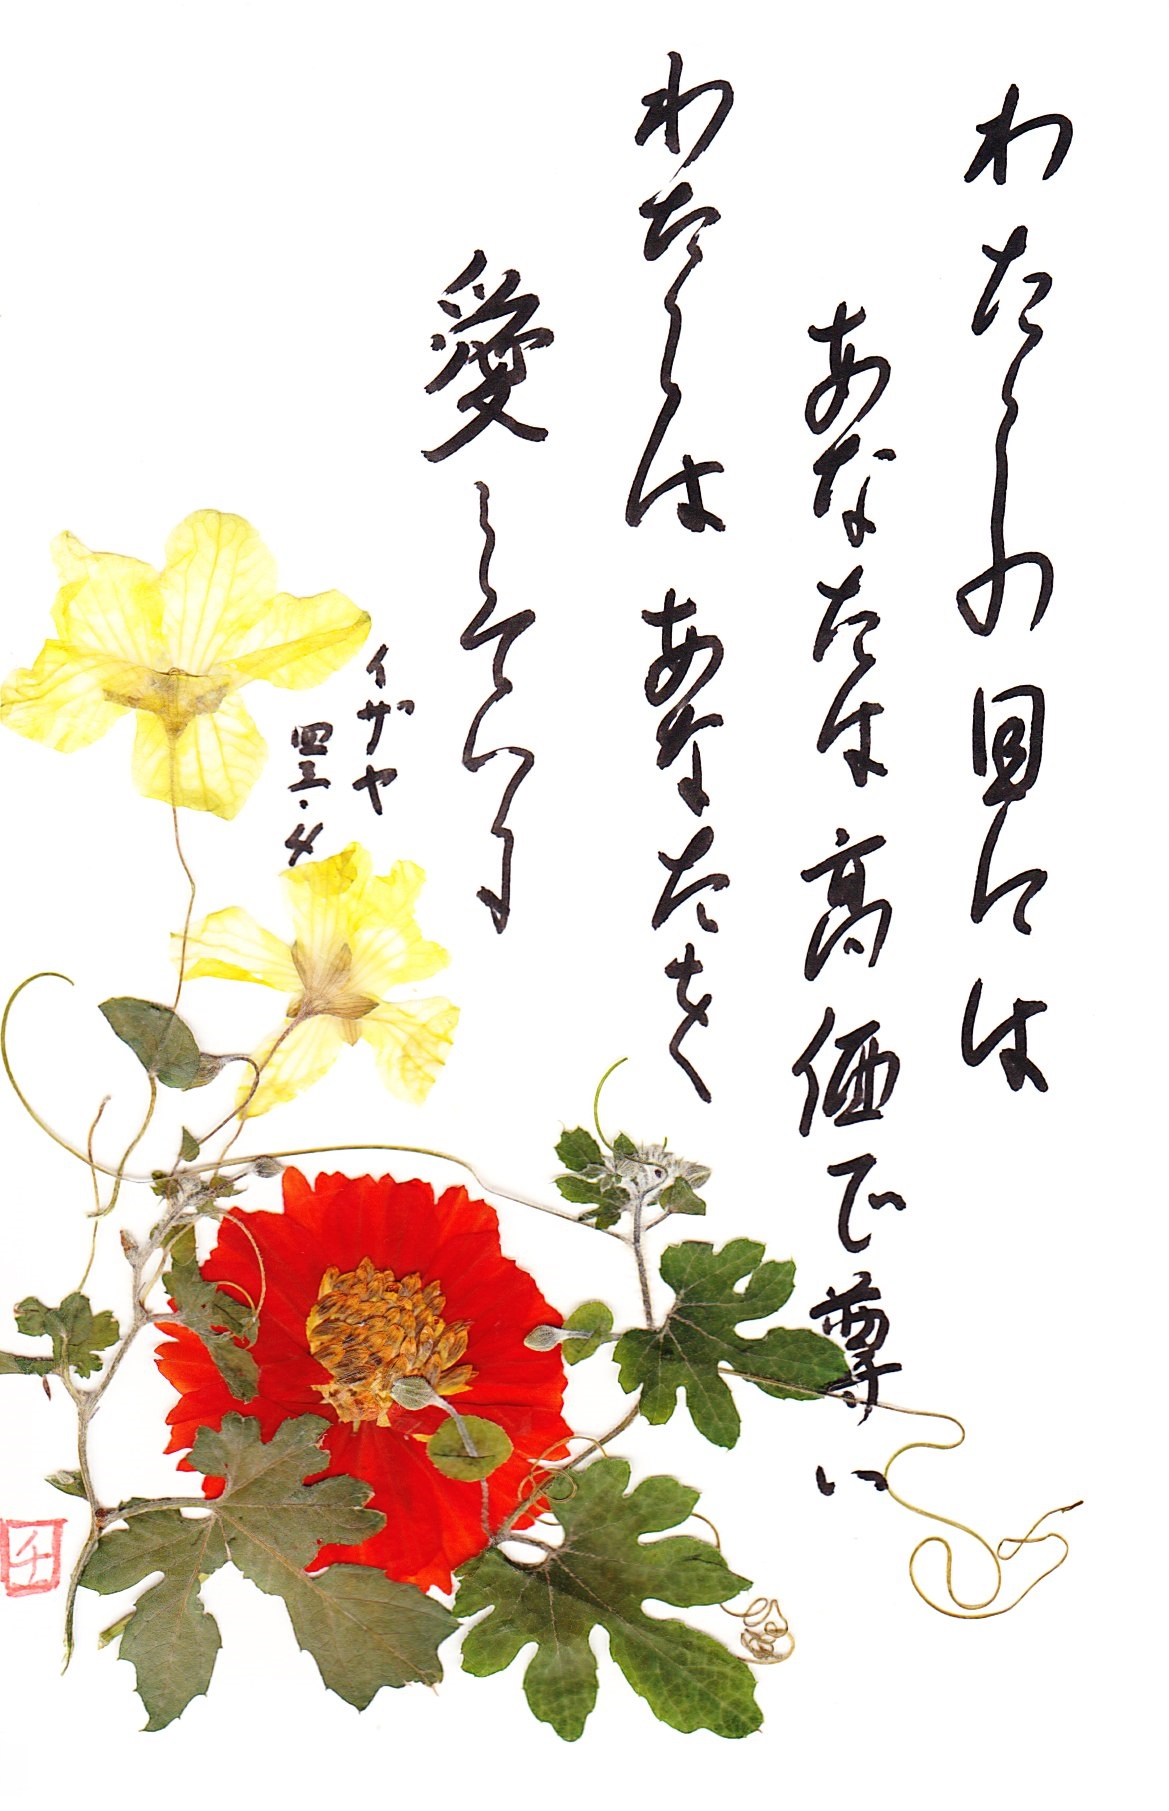 わたしの目には
あなたは高価で尊い
わたしはあなたを
愛している
イザヤ
四三・四
チ